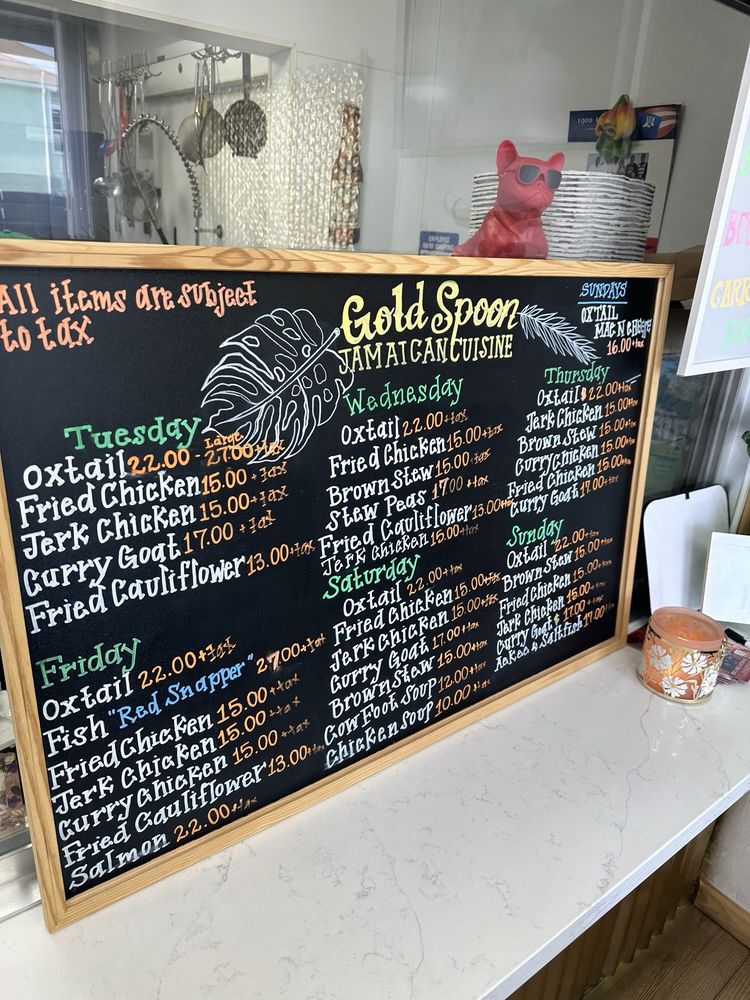 All items are subject
to tax
Gold Spoon
JAMAICAN CUISINE
SUNDAYS
OXTAIL
MAC N CHEESE
16.00+tax
Tuesday
Large
Oxtail 22.00 - 27.00+tax
Fried Chicken 15.00+tax
Jerk Chicken 15.00+tax
Curry Goat 17.00+tax
Fried Cauliflower 13.00+tax
Wednesday
Oxtail 22.00+tax
Fried Chicken 15.00+tax
Brown Stew 15.00+tax
Stew Peas 17.00+tax
Fried Cauliflower 13.00+tax
Jerk Chicken 15.00+tax
Thursday
Oxtail 22.00+tax
Jerk Chicken 15.00+tax
Brown Stew 15.00+tax
Curry Chicken 15.00+tax
Fried Chicken 15.00+tax
Curry Goat 17.00+tax
Friday
Oxtail 22.00+tax
Fish "Red Snapper" 27.00+tax
Fried Chicken 15.00+tax
Jerk Chicken 15.00+tax
Curry Chicken 15.00+tax
Fried Cauliflower 13.00+tax
Salmon 22.00+tax
Saturday
Oxtail 22.00+tax
Fried Chicken 15.00+tax
Jerk Chicken 15.00+tax
Curry Goat 17.00+tax
Brown Stew 15.00+tax
Cow Foot Soup 12.00+tax
Chicken Soup 10.00+tax
Sunday
Oxtail 22.00+tax
Brown Stew 15.00+tax
Fried Chicken 15.00+tax
Jerk Chicken 15.00+tax
Curry Goat 17.00+tax
Ackee & Saltfish 17.00+tax
1900
EMPLOYEE